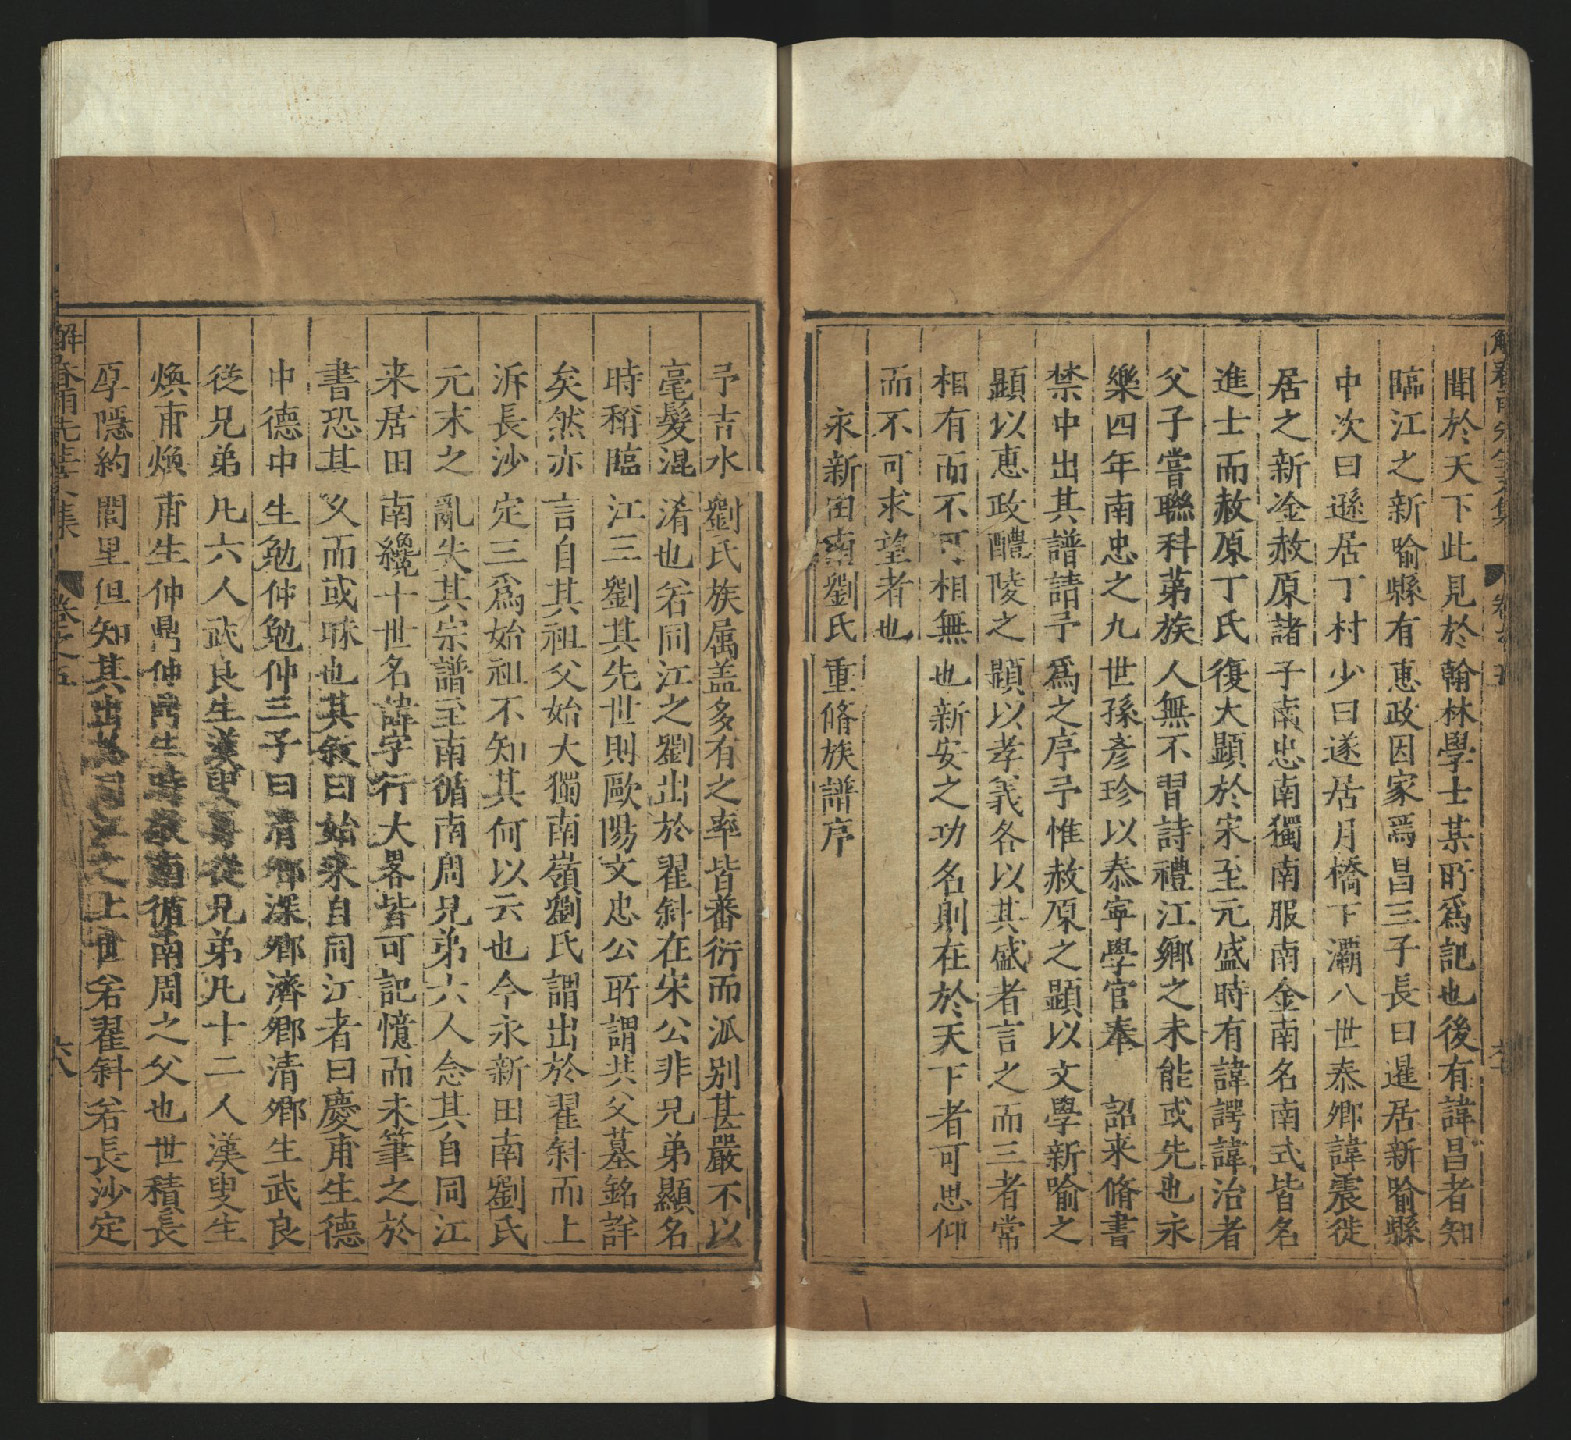 聞於天下此見於翰林學士某所爲記也後有諱昌者知
臨江之新喻縣有惠政因家焉昌三子長曰暹居新喻縣
中次曰遜居丁村少曰遂居月橋下灞八世泰鄉諱震徙
居之新淦赦原諸子南忠南獨南服南金南名南式皆名
進士而赦原丁氏復大顯於宋至元盛時有諱諤諱治者
父子嘗聯科苐族人無不習詩禮江鄉之未能或先也永
樂四年南忠之九世孫彥珍以泰寧學官奉 詔来脩書
禁中出其譜請予爲之序予惟赦原之顯以文學新喻之
顯以惠政醴陵之顯以孝義各以其盛者言之而三者常
相有而不可相無也新安之功名則在於天下者可思仰
而不可求望者也
永新田南劉氏重脩族譜序
予吉水劉氏族属盖多有之率皆蕃衍而派别甚嚴不以
毫髮混淆也若同江之劉出於翟斜在宋公非兄弟顯名
時稱臨江三劉其先世則歐陽文忠公所謂共父墓銘詳
矣然亦言自其祖父始大獨南嶺劉氏謂出於翟斜而上
泝長沙定三爲始祖不知其何以云也今永新田南劉氏
元末之亂失其宗譜至南循南周兄弟六人念其自同江
来居田南纔十世名諱字行大畧皆可記憶而未筆之於
書恐其乆而或昧也其敘曰始来自同江者曰慶甫生德
中德中生勉仲勉仲三子曰清鄉深鄉濟鄉清鄉生武良
從兄弟凡六人武良生漢叟從兄弟凡十二人漢叟生
煥甫煥甫生仲鼎仲生時南循南周之父也世積長
厚隱約閭里但知其出同江之上世若翟斜若長沙定
解春雨先生文集 卷之五 六